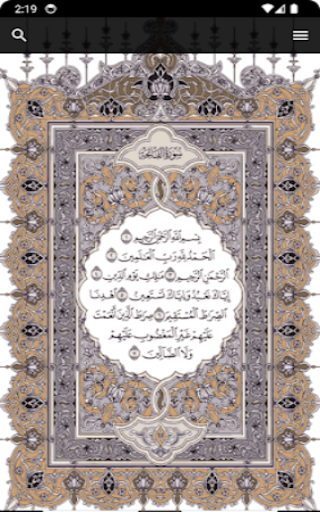 2:19
سورة الفاتحة
بِسْمِ اللَّهِ الرَّحْمَٰنِ الرَّحِيمِ ۝١
الْحَمْدُ لِلَّهِ رَبِّ الْعَالَمِينَ ۝٢
الرَّحْمَٰنِ الرَّحِيمِ ۝٣ مَالِكِ يَوْمِ الدِّينِ ۝٤
إِيَّاكَ نَعْبُدُ وَإِيَّاكَ نَسْتَعِينُ ۝٥ اهْدِنَا
الصِّرَاطَ الْمُسْتَقِيمَ ۝٦ صِرَاطَ الَّذِينَ أَنْعَمْتَ
عَلَيْهِمْ غَيْرِ الْمَغْضُوبِ عَلَيْهِمْ
وَلَا الضَّالِّينَ ۝٧